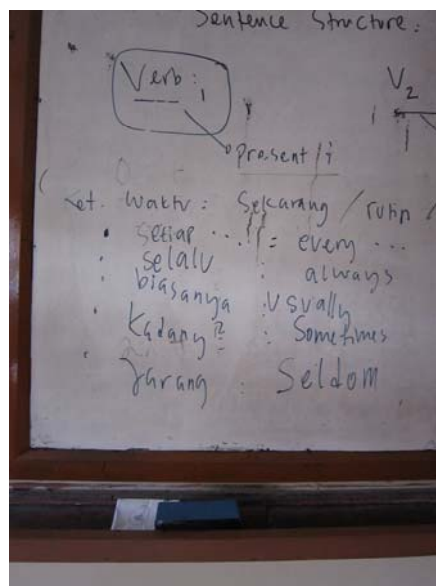 Sentence Structure:
Verb: 1
V2
present/i
Ket. Waktu: Sekarang / rutin /
• setiap ... = every ...
• selalu : always
• biasanya : usually
• Kadang2 : Sometimes
• Jarang : Seldom